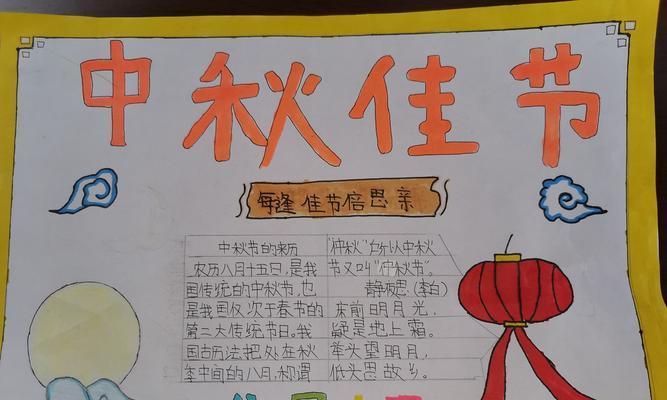 中秋佳节
每逢佳节倍思亲
中秋节的来历
农历八月十五日,是我
国传统的中秋节,也
是我国仅次于春节的
第二大传统节日。我
国古历法把处在秋
季中间的八月,称谓
"仲秋"所以中秋
节又叫"仲秋节"。
静夜思(李白)
床前明月光,
疑是地上霜。
举头望明月,
低头思故乡。